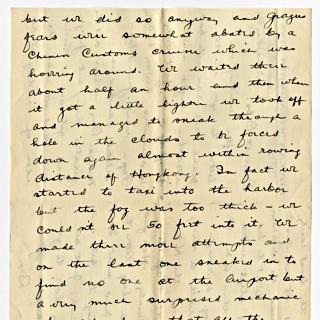 but we did so anyway and Grazers
fears were somewhat abated by a
Chinese Customs cruiser which was
hovering around. We waited there
about half an hour and then when
it got a little lighter we took off
and managed to sneak through a
hole in the clouds to be forced
down again almost within rowing
distance of Hongkong. In fact we
started to taxi into the harbor
but the fog was too thick - we
couldn't see 50 feet into it. We
made three more attempts and
on the last one sneaked in to
find no one at the airport but
a very much surprised mechanic
that all the